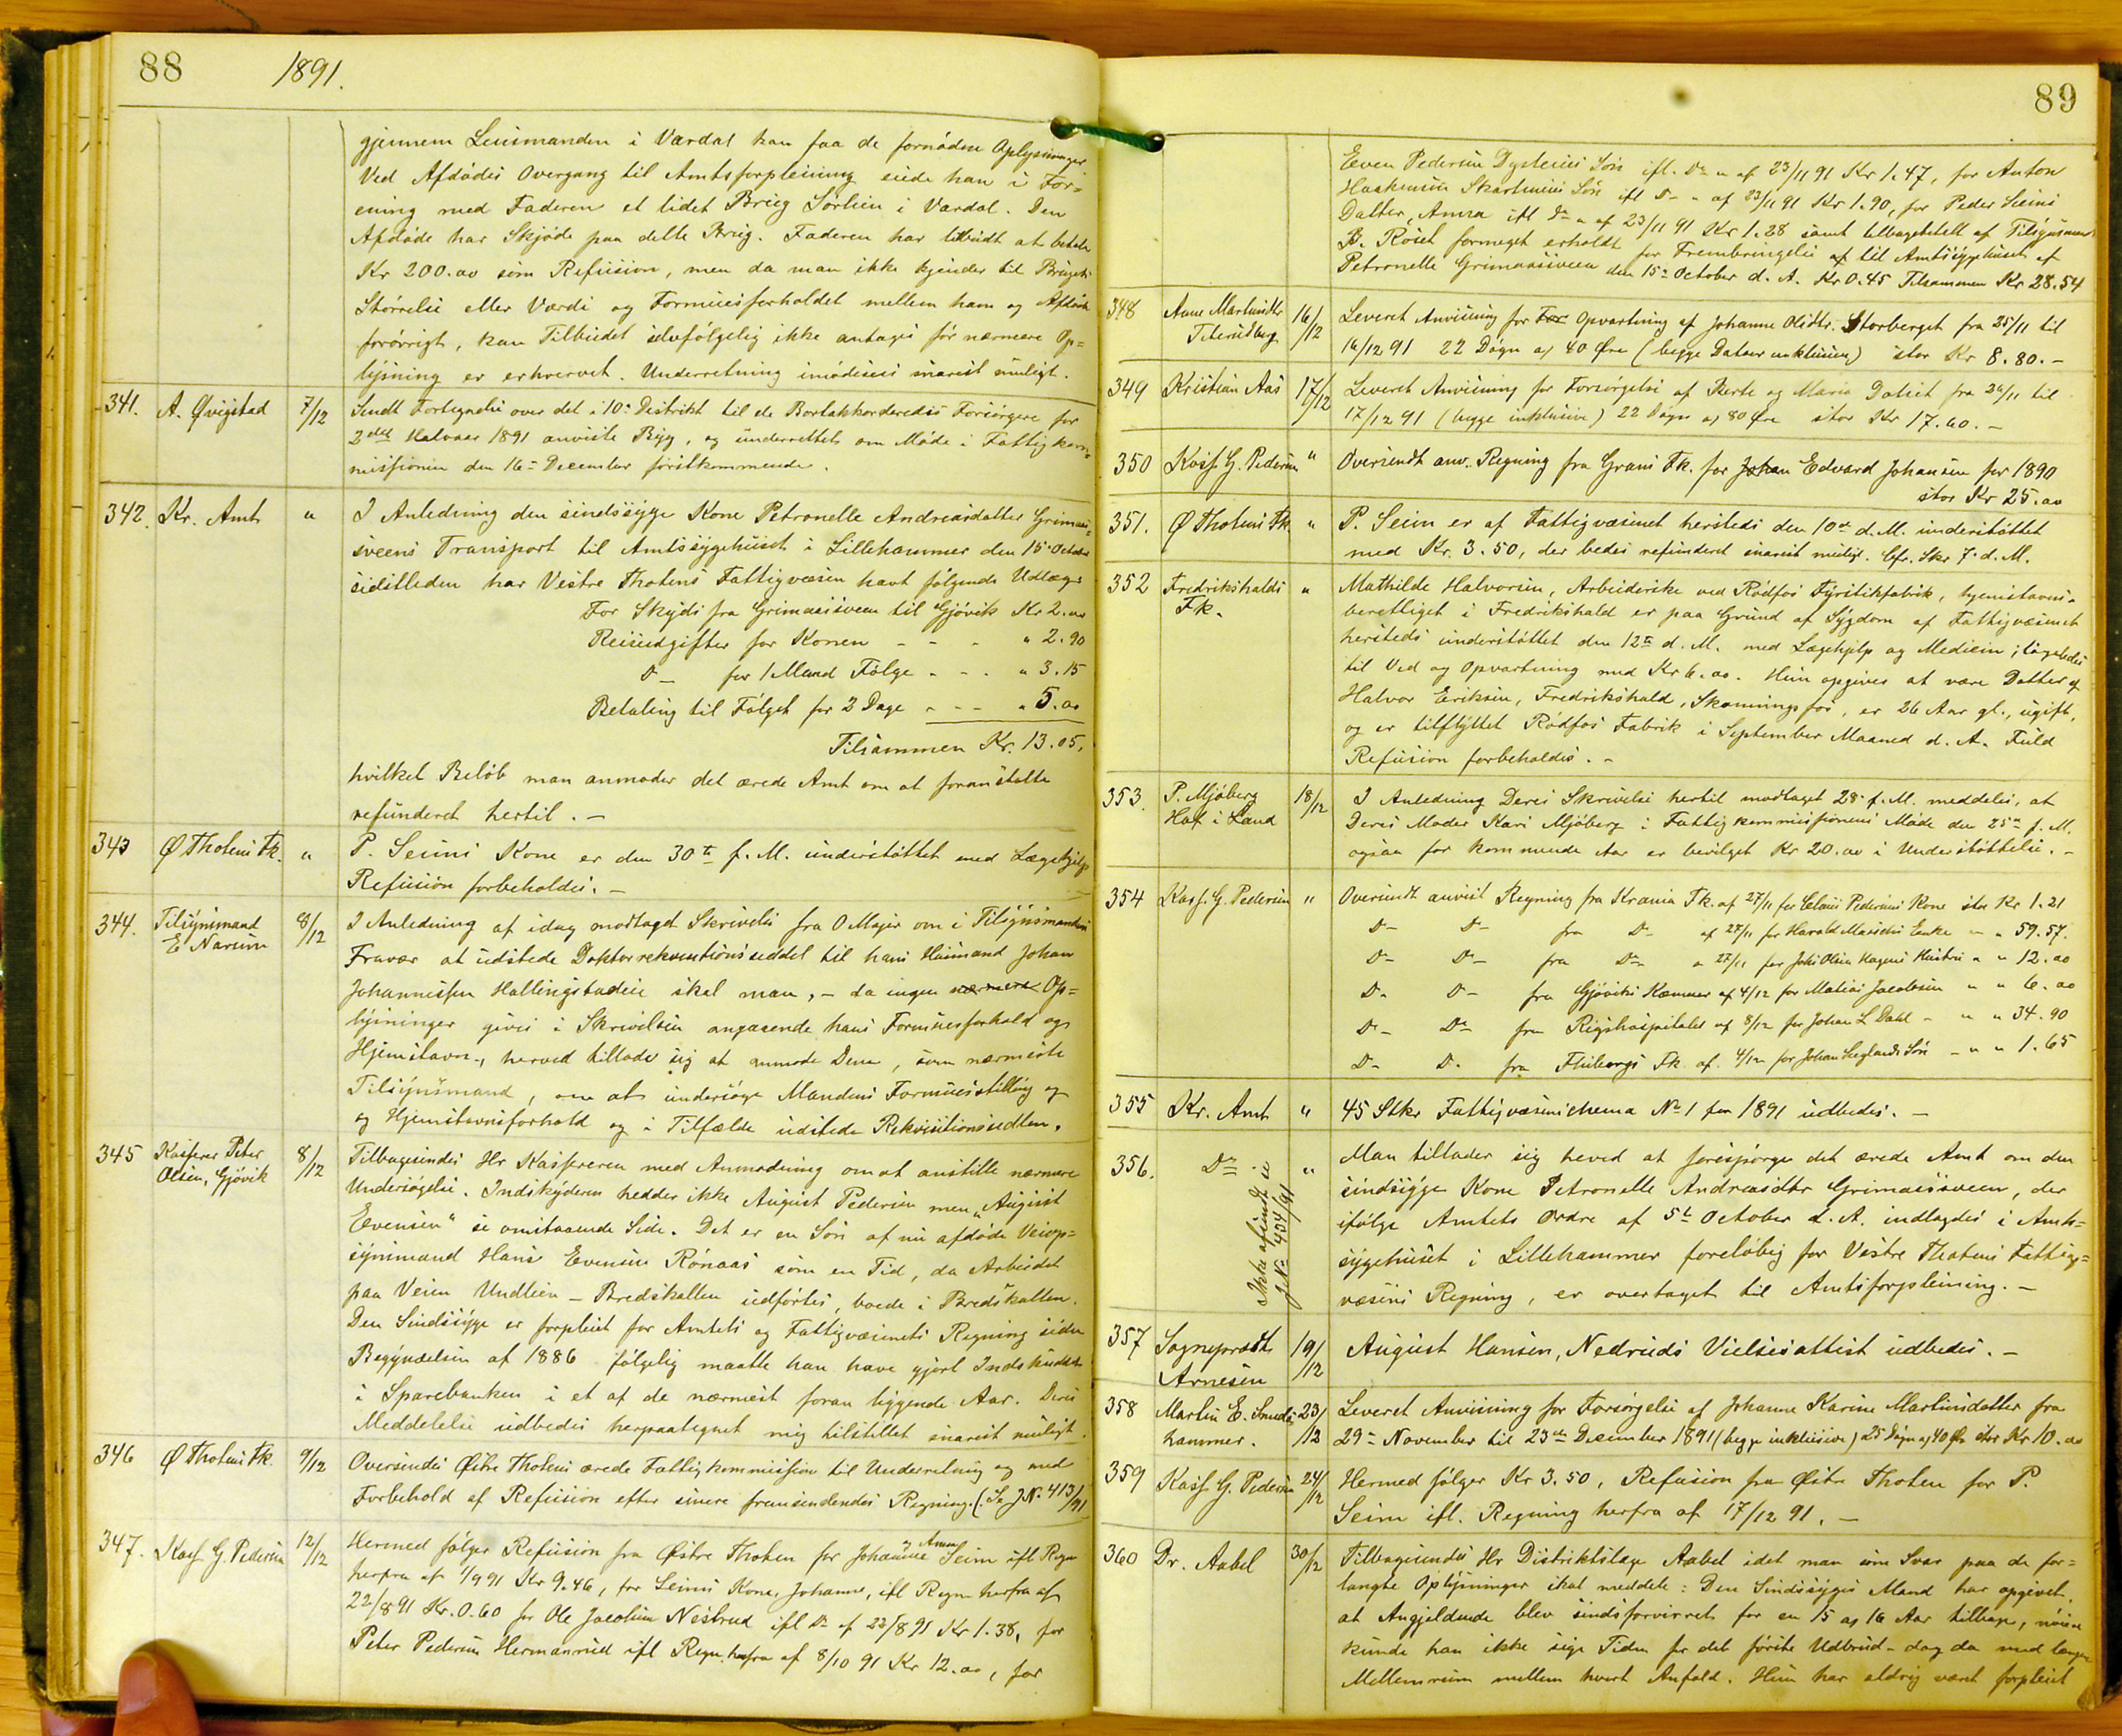 88 1891.
gjennem Lensmanden i Vardal kan faa de fornødne Oplysninger
Ved Afdødes Overgang til Amtsforpleining eiede han i For=
ening med Faderen et lidet Brug Sørlien i Vardal. Den
Afdøde har Skjøde paa dette Brug. Faderen har tilbudt at betale
Kr 200.00 som Refusion, men da man ikke kjender til Brugets
Størrelse eller Værdi og Formuesforholdet mellem ham og Afdøde
forøvrigt, kan Tilbudet selvfølgelig ikke antages før nærmere Op=
lysning er erhvervet. Underretning imødesees snarest muligt.
341. A. Qvigstad 7/12 Sendt Fortegnelse over det i 10de Distrikt til de Bortakkorderedes Forsørgere for
2det Halvaar 1891 anviste Byg, og underrettet om Møde i Fattigkom=
missionen den 16de December førstkommende.
342. Kr. Amt " I Anledning den sindssyge Kone Petronelle Andreasdatter Grimas=
sveens Transport til Amtssygehuset i Lillehammer den 15de October
sidstleden har Vestre Thotens Fattigvæsen havt følgende Udlæg:
For Skyds fra Grimassveen til Gjøvik Kr 2.00
Reiseudgifter for Konen - - - " 2.90
Do for 1 Mand Følge - - - " 3.15
Betaling til Følget for 2 Dage - - - " 5.00
Tilsammen Kr. 13.05.
hvilket Beløb man anmoder det ærede Amt om at foranstalte
refunderet hertil. -
343 Ø Thotens Fk. " P. Seims Kone er den 30te f. M. understøttet med Lægehjelp
Refusion forbeholdes. -
344. Tilsynsmand 8/12 I Anledning af idag modtaget Skrivelse fra O Majer om i Tilsynsmandens
E Narum Fravær at udstede Doktorrekvisitionsseddel til hans Husmand Johan
Johannessen Hallingstadeie skal man, - da ingen nærmere Op=
lysninger gives i Skrivelsen angaaende hans Formuesforhold og
Hjemstavn -, herved tillade sig at anmode Dem, som nærmeste
Tilsynsmand, om at undersøge Mandens Formuesstilling og
og Hjemstavnsforhold og i Tilfælde udstede Rekvisitionssedlen.
345 Kasserer Peter 8/12 Tilbagesendes Hr Kassereren med Anmodning om at anstille nærmere
Olsen, Gjøvik Undersøgelse. Indskyderen hedder ikke August Pedersen men "August
Evensen" se omstaaende Side. Det er en Søn af nu afdøde Veiop=
synsmand Hans Evensen Rønaas som en Tid, da Arbeidet
paa Veien Undlien - Bredskallen udførtes, boede i Bredskallen.
Den Sindssyge er forpleiet for Amtets og Fattigvæsenets Regning siden
Begyndelsen af 1886 følgelig maatte han have gjort Indskuddet
i Sparebanken i et af de nærmest foran liggende Aar. Deres
Meddelelse udbedes herpaategnet mig tilstillet snarest muligt.
346 Ø Thotens Fk. 9/12 Oversendes Østre Thotens ærede Fattigkommission til Underretning og med
Forbehold af Refusion efter senere fremsendendes Regning. (Se J N. 413/91
347. Kass. G. Pedersen 12/12 Hermed følger Refusion fra Østre Thoten for Johanne Anne Seim ifl Regn
herfra af 1/9 91 Kr 9.46, for Seims Kone, Johanne, ifl Regn herfra af
22/8 91 Kr. 0.60 for Ole Jacobsen Nestrud ifl Do af 22/8 91 Kr 1.38, for
Peter Pedersen Hermanrud ifl Regn. herfra af 8/10 91 Kr 12.00, for
89
Even Pedersen Dysteeies Søn ifl. Do " af 23/11 91 Kr 1.47, for Anton
Haakensen Skartmeies Søn ifl Do " af 23/11 91 Kr 1.90, for Peder Seims
Datter, Anna ifl Do " af 23/11 91 Kr 1.28 samt tilbagebetalt af Tilsynsmand
B. Røset formeget erholdt for Frembringelse af til Amtssygehuset af
Petronelle Grimassveen den 15de October d. A. Kr 0.45 Tilsammen Kr 28.54
348 Anne Martinsdtr 16/12 Leveret Anvisning for For Opvartning af Johanne Olsdtr. Storberget fra 25/11 til
Titerudberg 16/12 91 22 Døgn a 40 Øre (begge Datoer inklusive) stor Kr 8.80. -
349 Kristian Aas 17/12 Leveret Anvisning for Forsørgelse af Berte og Maria Dalset fra 26/11 til
17/12 91 (begge inklusive) 22 Døgn a 80 Øre stor Kr 17.60. -
350 Kass. G. Pedersen " Oversendt anv. Regning fra Grans Fk. for Johan Edvard Johansen for 1890
stor Kr 25.00
351. Ø Thotens Fk " P. Seim er af Fattigvæsenet hersteds den 10de d. M. understøttet
med Kr. 3.50, der bedes refunderet snarest muligt. Cfr. Skr 7de d. M.
352 Fredrikshalds " Mathilde Halvorsen, Arbeiderske ved Rødfos Fyrstikfabrik, hjemstavns-
Fk. berettiget i Fredrikshald er paa Grund af Sygdom af Fattigvæsenet
hersteds understøttet den 12te d. M. med Lægehjelp og Medicin; ligeledes
til Ved og Opvartning med Kr 6.00. Hun opgives at være Datter af
Halvor Eriksen, Fredrikshald, Skonningsfos, er 26 Aar gl., ugift,
og er tilflyttet Rødfos Fabrik i September Maaned d. A. Fuld
Refusion forbeholdes. -
353. P. Mjøberg 18/12 I Anledning Deres Skrivelse hertil modtaget 28de f. M. meddeles, at
Hof i Land Deres Moder Kari Mjøberg i Fattigkommissionens Møde den 25de f. M.
ogsaa for kommende Aar er bevilget Kr 20.00 i Understøttelse. -
354 Kass. G. Pedersen " Oversendt anvist Regning fra Krania Fk. af 27/11 for Claus Pedersens Kone stor Kr 1.21
Do Do fra Do af 27/11 for Harald Masichs Enke " " 59.57.
Do Do fra Do a 27/11 for Johs Olsen Hagens Hustru " " 12.00
Do Do fra Gjøviks Kæmner af 4/12 for Matias Jacobsen " " 6.00
Do Do fra Rigshospitalet af 8/12 for Johan L Dahl - " " 34.90
Do Do fra Fluberg Fk. af 4/12 for Johan Seglands Søn - " " 1.65
355 Kr. Amt " 45 Stkr Fattigvæsenschema No 1 for 1891 udbedes. -
356. Do " Man tillader sig heved at forespørge det ærede Amt om den
Ikke afsendt se
J No 434/91
sindssyge Kone Petronelle Andreasdtr Grimassveen, der
ifølge Amtets Ordre af 5te October d. A. indlagdes i Amts=
sygehuset i Lillehammer foreløbig for Vestre Thotens Fattig=
væsens Regning, er overtaget til Amtsforpleining. -
357 Sogneprest 19/12 August Hansen, Nedruds Vielsesattest udbedes. -
Arnesen
358 Martin E. Smeds= 23/12 Leveret Anvisning for Forsørgelse af Johanne Karine Martinsdatter fra
hammer. 29de November til 23de December 1891 (begge inklusive) 25 Døgn a 40 Øre stor Kr 10.00
359 Kass. G. Pedersen 24/12 Hermed følger Kr 3.50, Refusion fra Østre Thoten for P.
Seim ifl. Regning herfra af 17/12 91. -
360 Dr. Aabel 30/12 Tilbagesendes Hr Distriktslæge Aabel idet man som Svar paa de for=
langte Oplysninger skal meddele: Den Sindssyges Mand har opgivet,
at Angjeldende blev sindsforvirret for en 15 a 16 Aar tilbage, nøiere
kunde han ikke sige Tiden for det første Udbrud - dog da med længere
Mellemrum mellem hvert Anfald. Hun har aldrig været forpleiet